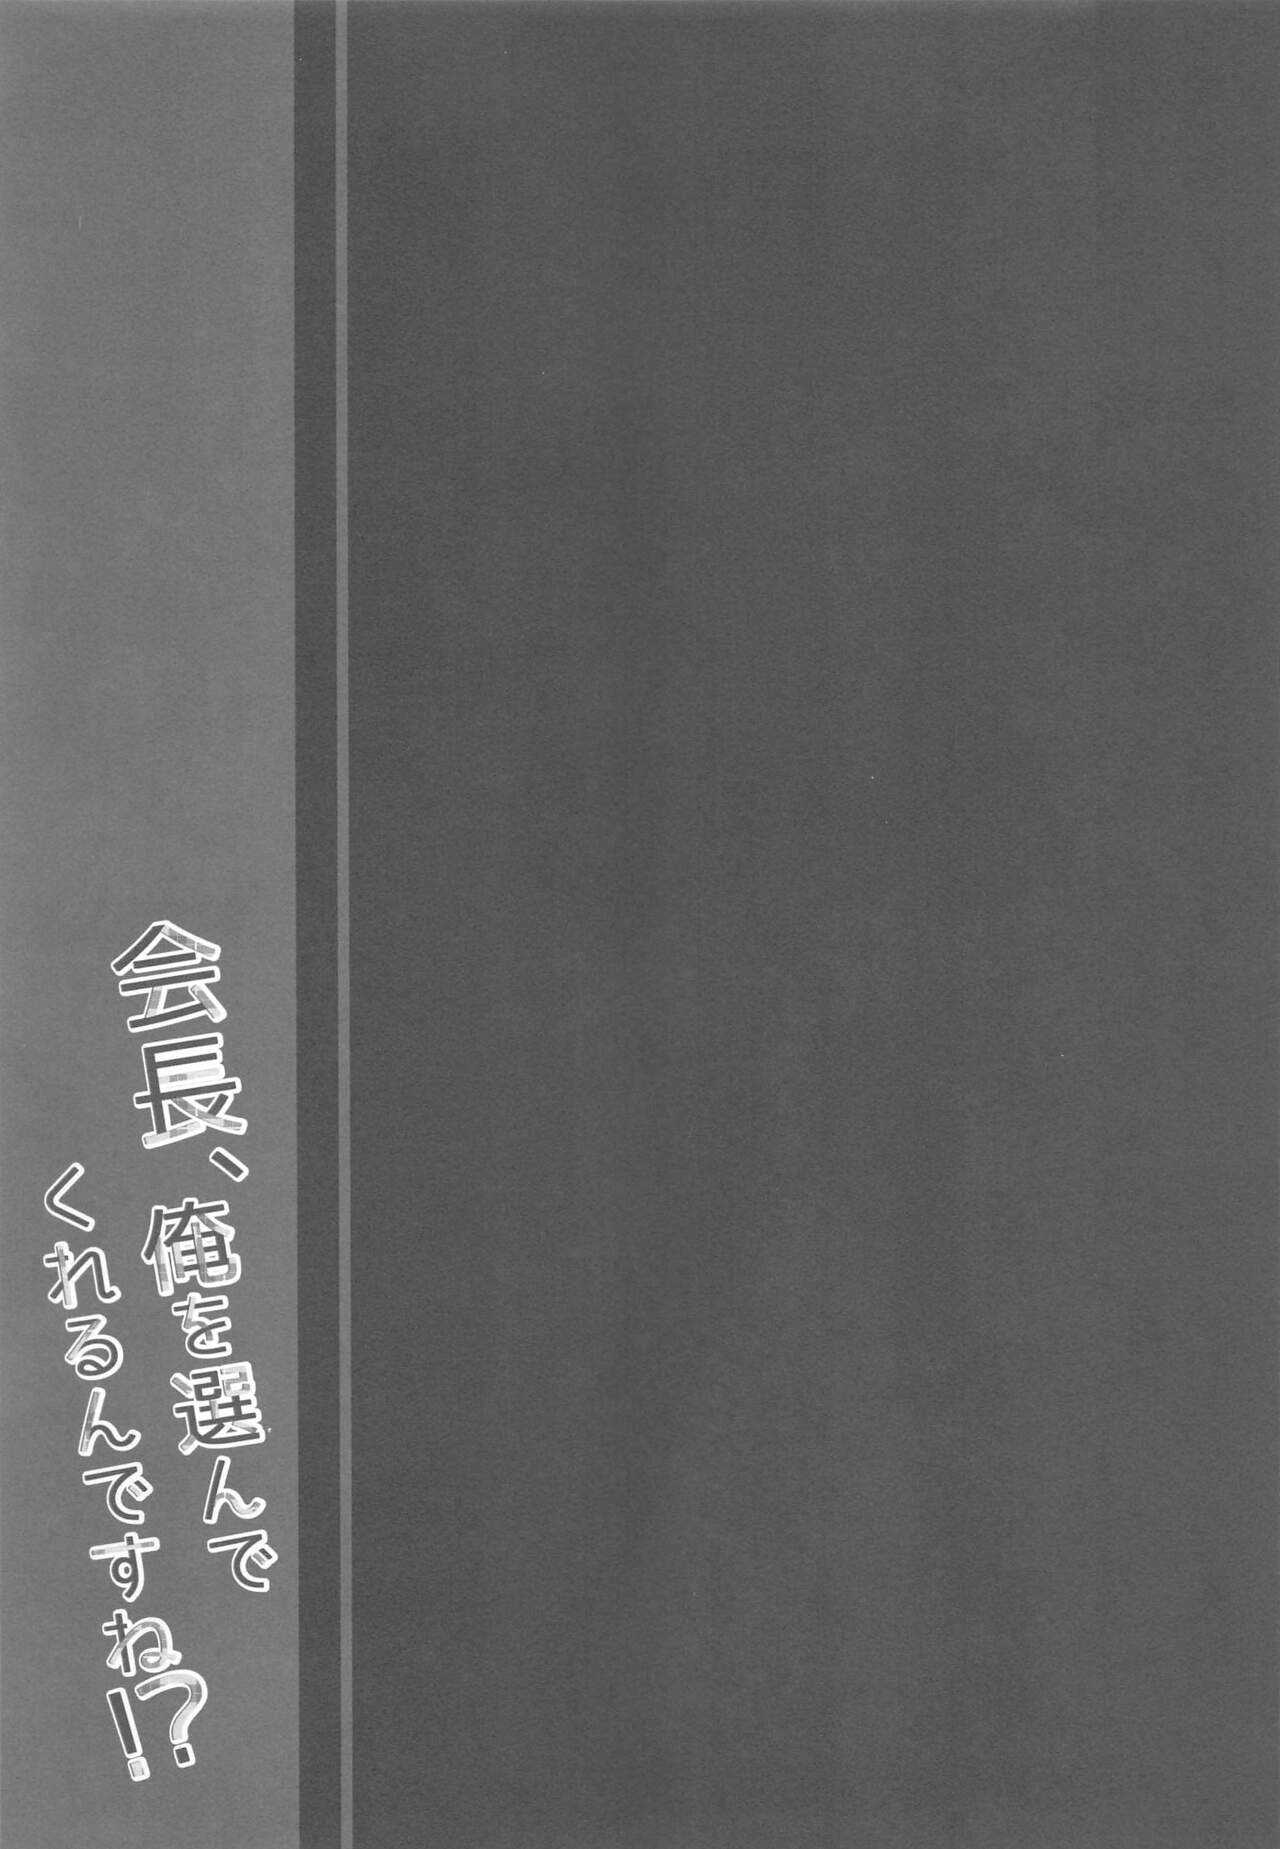 会長、俺を選んで
くれるんですね!?